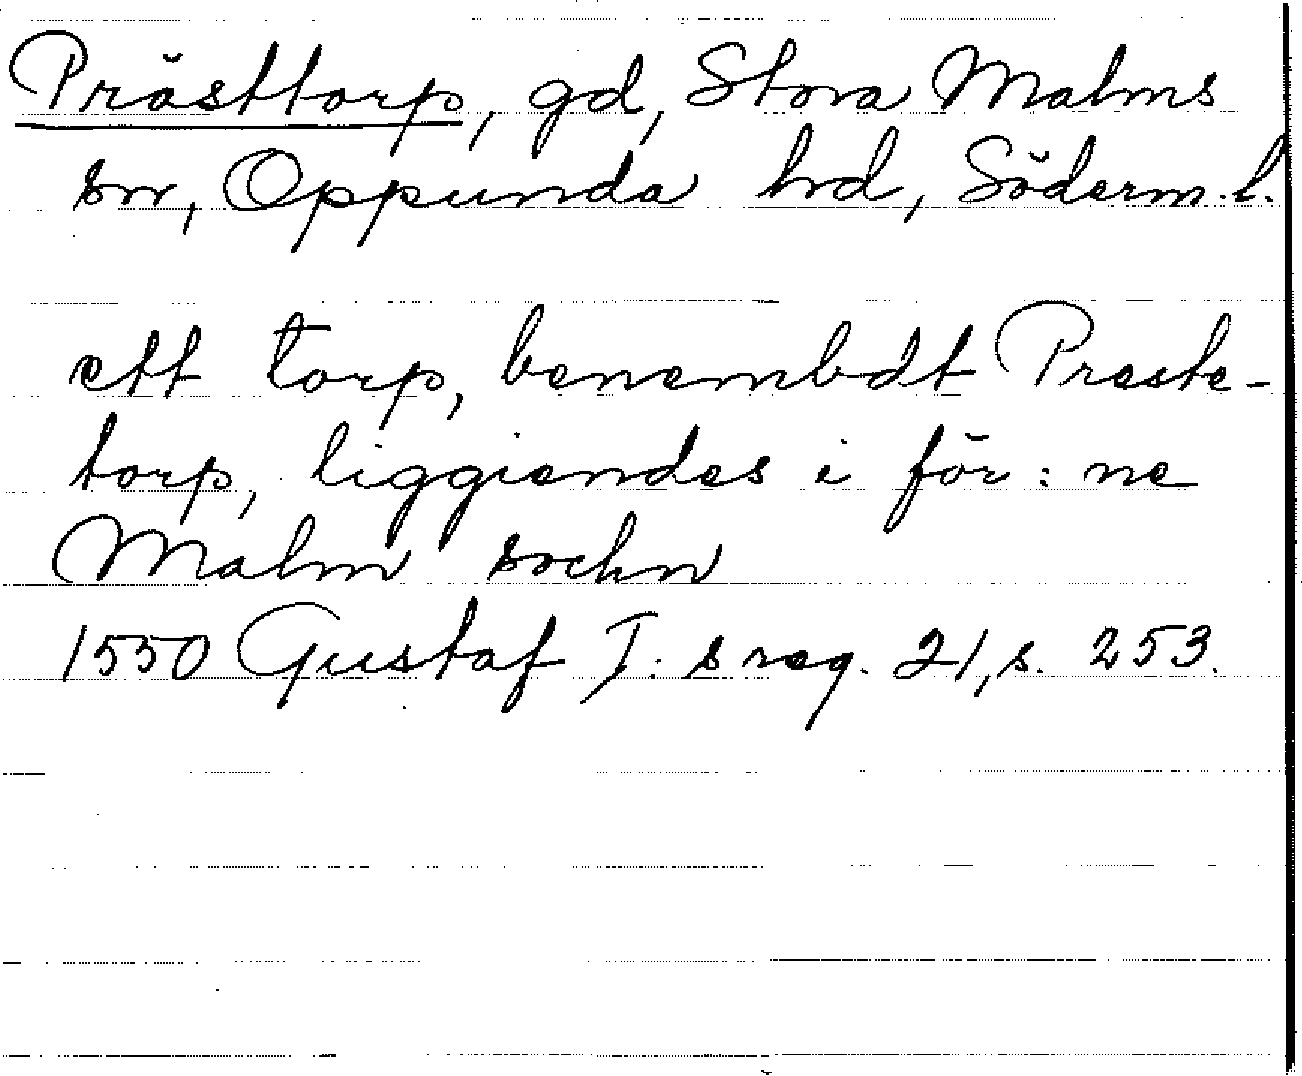 Prästtorp, gd, Stora Malms
sn, Oppunda hd, Söderm.l.
ett torp, benembdt Preste-
torp, liggiendes i för:ne
Malm sochn
1550 Gustaf I:s reg. 21, s. 253.